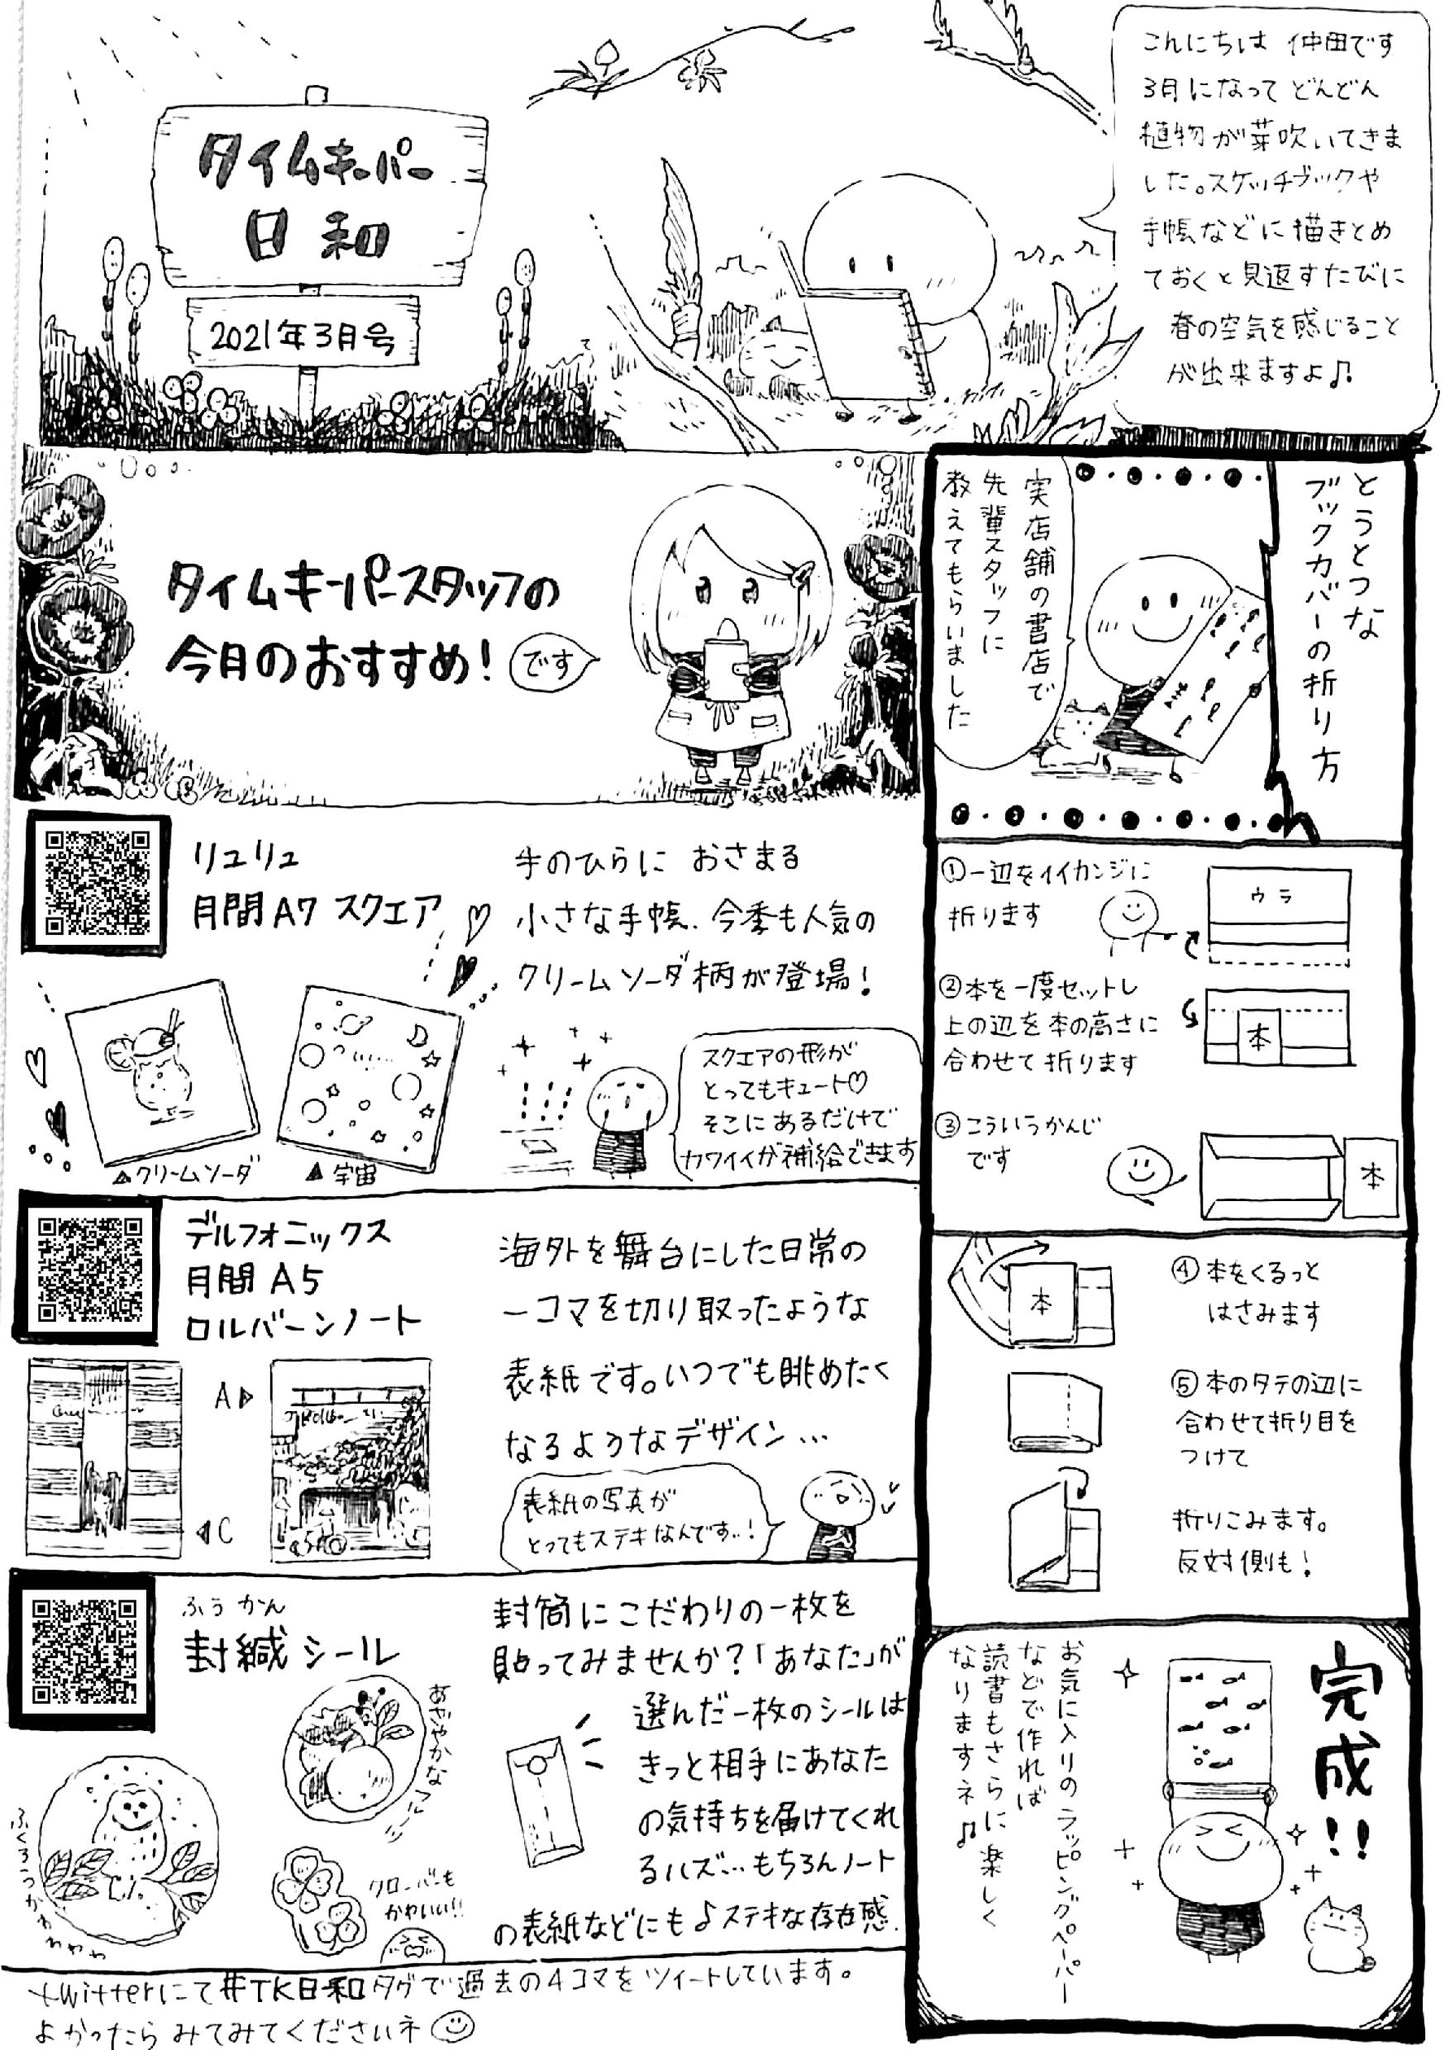 タイムキーパー
日和
2021年3月号
こんにちは 仲田です
3月になって どんどん
植物が芽吹いてきま
した。スケッチブックや
手帳などに描きとめ
ておくと見返すたびに
春の空気を感じること
が出来ますよ♫
タイムキーパースタッフの
今月のおすすめ!
です
リュリュ
月間A7 スクエア
手のひらに おさまる
小さな手帳、今季も人気の
クリームソーダ柄が登場!
▲クリームソーダ
▲宇宙
スクエアの形が
とってもキュート♡
そこにあるだけで
カワイイが補給できます
デルフォニックス
月間 A5
ロルバーンノート
A▶
◀C
海外を舞台にした日常の
一コマを切り取ったような
表紙です。いつでも眺めたく
なるようなデザイン…
表紙の写真が
とってもステキなんです..!
ふう かん
封緘シール
あざやかなフルーツ
ふくろうかわわわわ
クローバーも
かわいい!!
封筒にこだわりの一枚を
貼ってみませんか?「あなた」が
選んだ一枚のシールは
きっと相手にあなた
の気持ちを届けてくれ
るハズ…もちろんノート
の表紙などにも♪ステキな存在感.
twitterにて#TK日和タグで過去の4コマをツイートしています。
よかったら みてみてくださいネ
とうとつな
ブックカバーの折り方
実店舗の書店で
先輩スタッフに
教えてもらいました
①一辺をイイカンジに
折ります
ウラ
②本を一度セットし
上の辺を本の高さに
合わせて折ります
本
③こういうかんじ
です
本
④本をくるっと
はさみます
本
⑤本のタテの辺に
合わせて折り目を
つけて
折りこみます。
反対側も!
完成!!
お気に入りのラッピングペーパー
などで作れば
読書もさらに楽しく
なりますネ♫